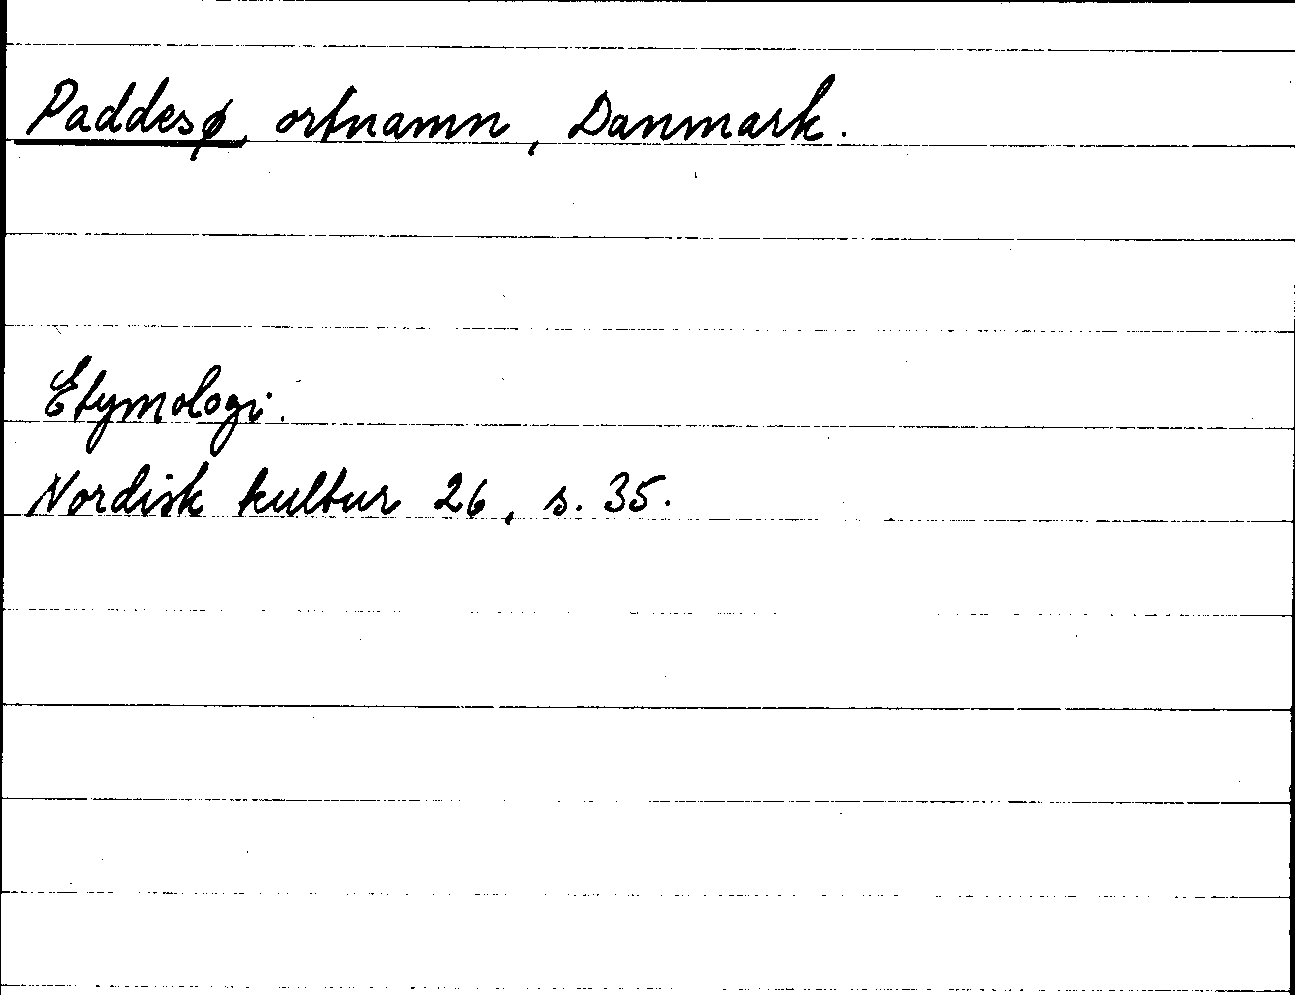 Paddesø, ortnamn, Danmark.
Etymologi.
Nordisk kultur 26, s. 35.